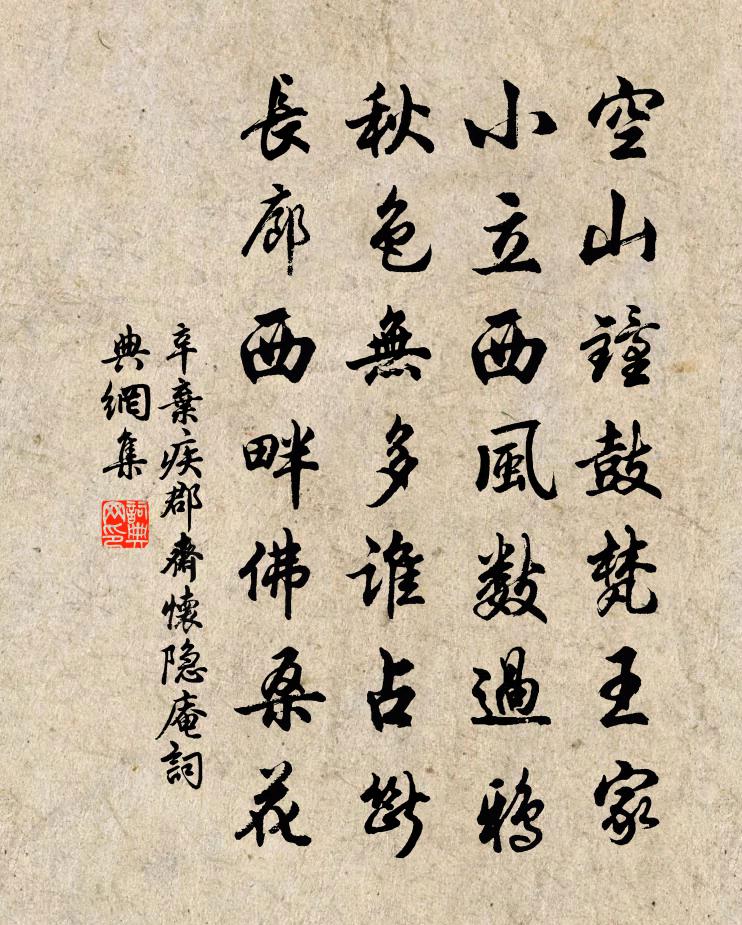 空山鐘鼓梵王家
小立西風數過鴉
秋色無多誰占斷
長廊西畔佛桑花
辛棄疾郡齋懷隐庵詞
典網集
詞典網印